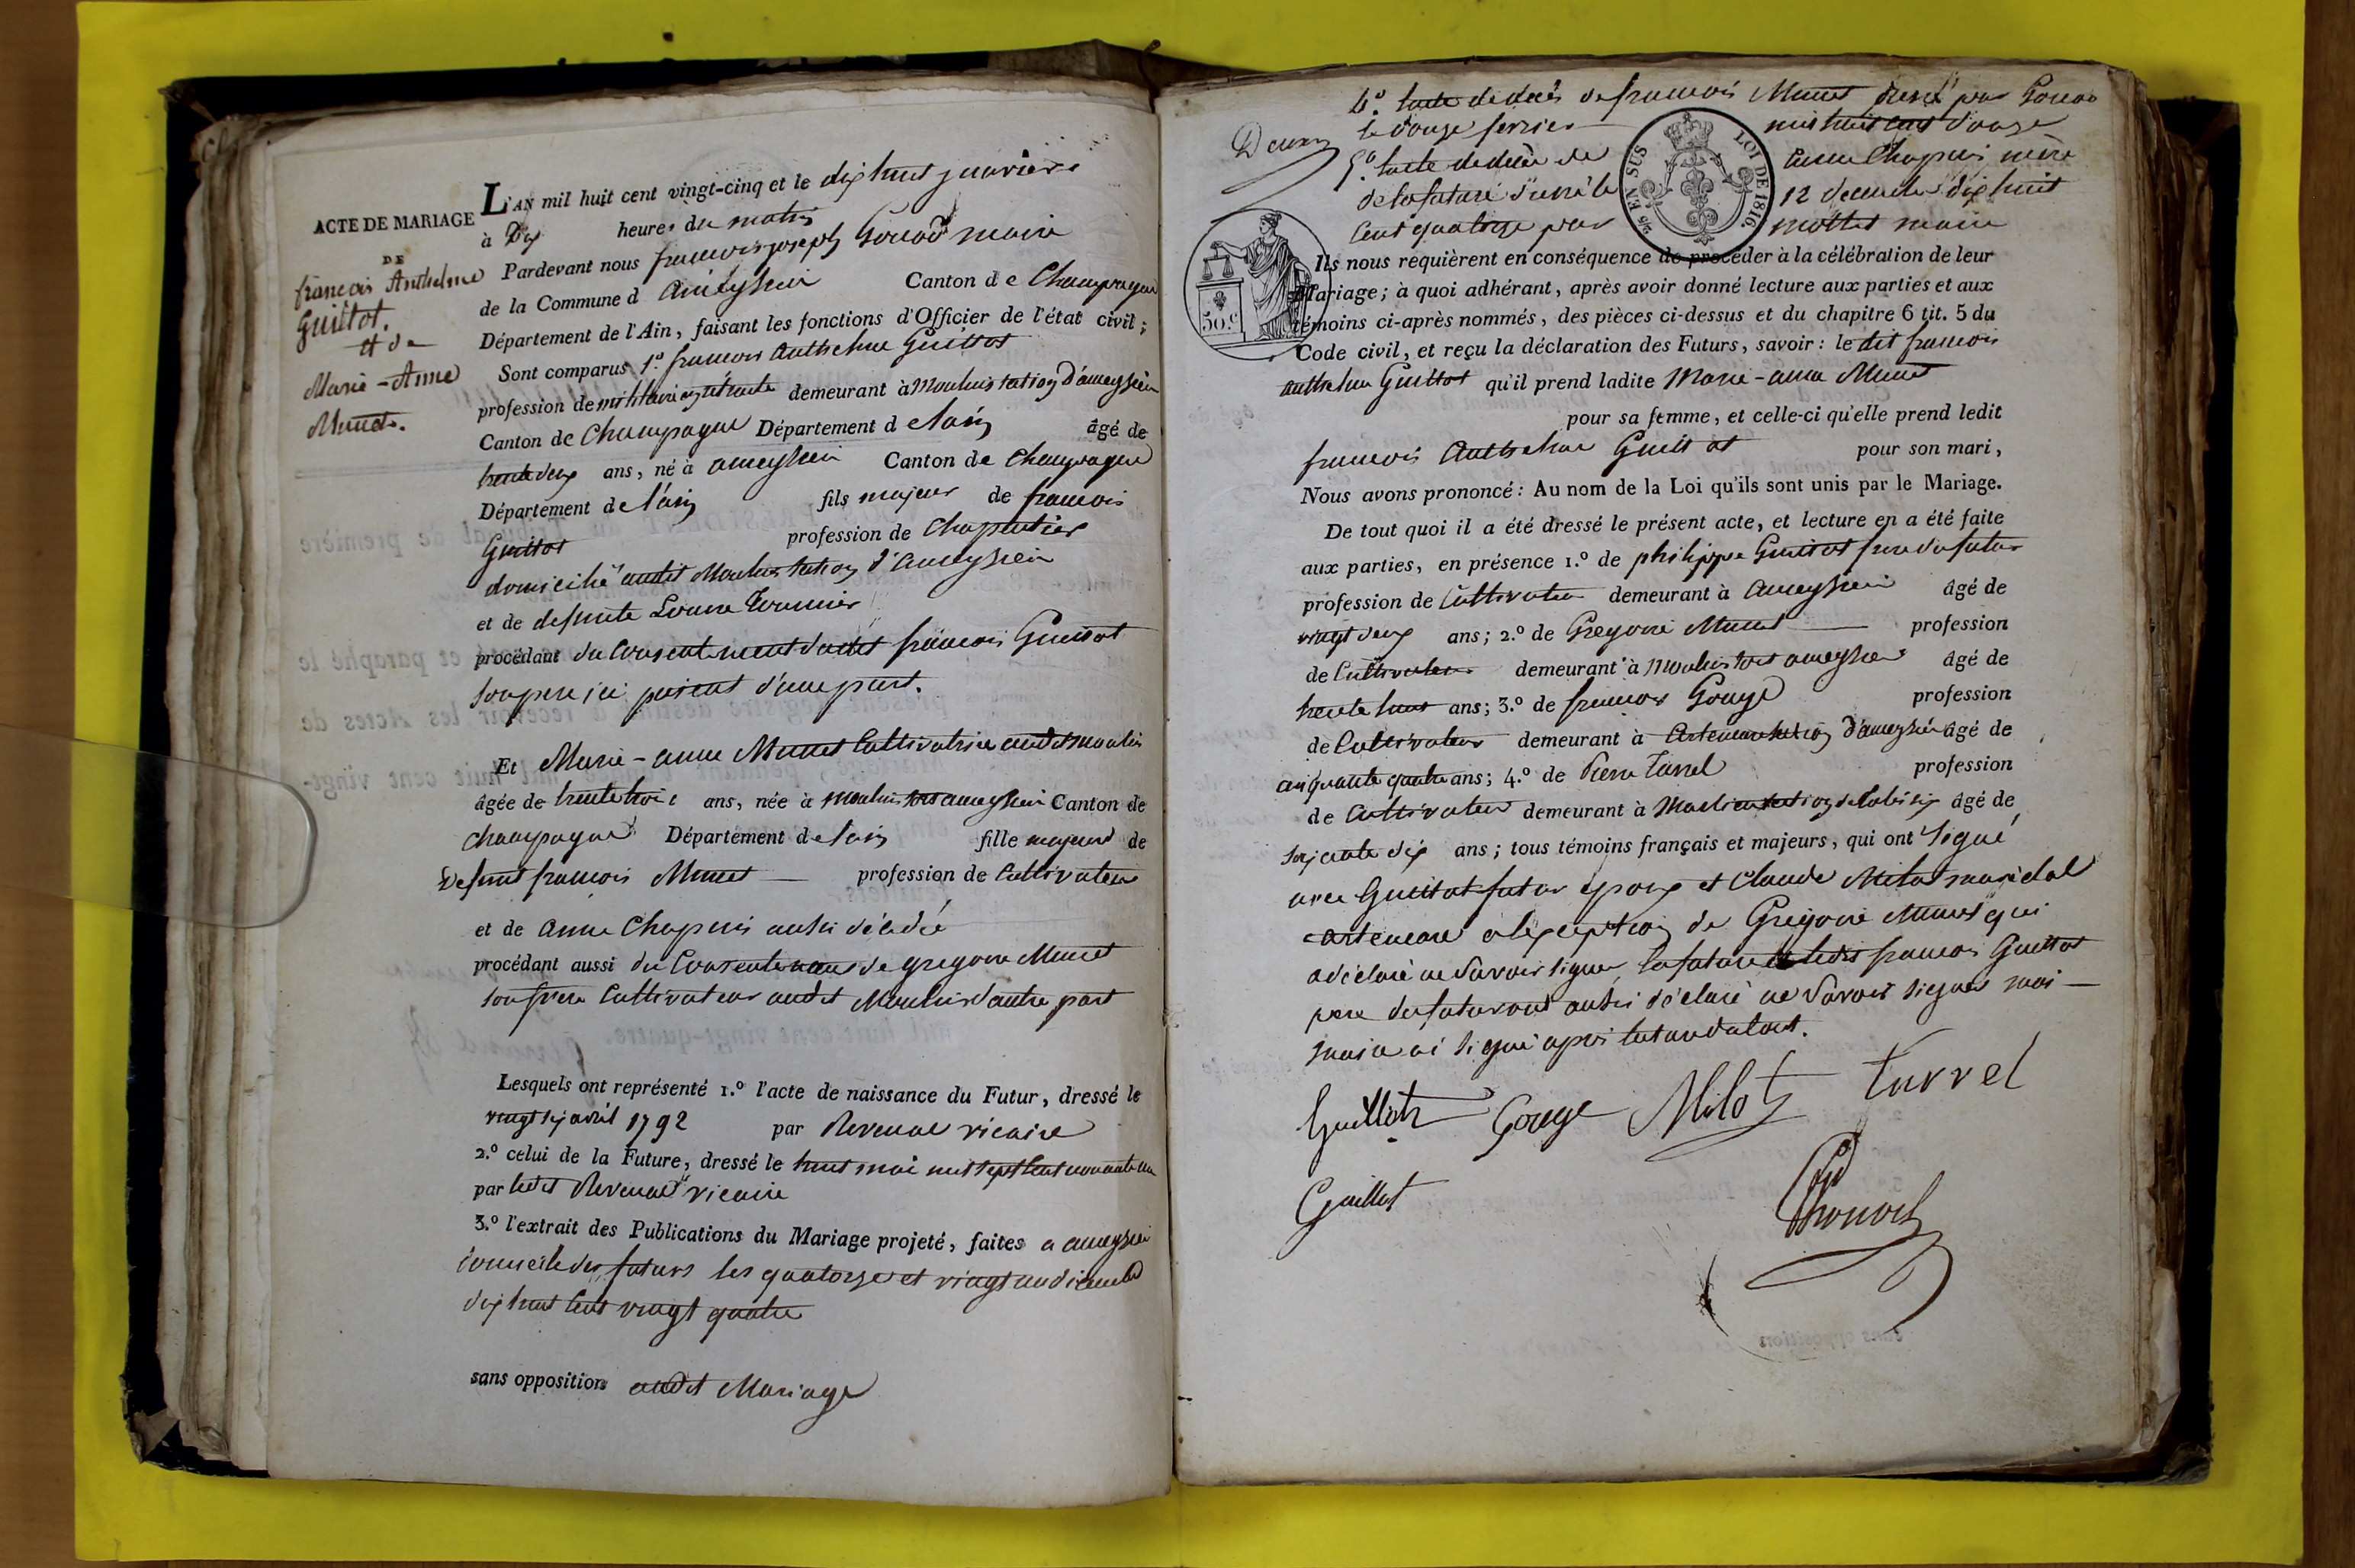 ACTE DE MARIAGE
DE
françois Anthelme
Guillot.
et de
Marie-Anne
Munet.
L'AN mil huit cent vingt-cinq et le dix huit janvier
à Dix heures du matin
Pardevant nous francois joseph Gonod maire
de la Commune d'Ameyzieu Canton de Champagne
Département de l'Ain, faisant les fonctions d'Officier de l'état civil;
Sont comparus 1.º francois Anthelme Guillot
profession de militaire en retraite demeurant à Moulins section d'ameyzieu
Canton de Champagne Département de l'ain âgé de
trente deux ans, né à ameyzieu Canton de Champagne
Département de l'ain fils majeur de francois
Guillot profession de Chapentier
domicilié audit Moulins section d'Ameyzieu
et de defunte
procédant du Consentement dudit francois Guillot
son pere ici présent d'une part.
Et Marie-anne Munet Cultivatrice audit moulin
âgée de trente trois ans, née à moulins sur ameyzieu Canton de
Champagne Département de l'ain fille majeure de
Defunt francois Munet profession de Cultivateur
et de Anne Chapuis aussi décédée
procédant aussi du Consentement de gregoire Munet
son frere Cultivateur audit Moulins d'autre part
Lesquels ont représenté 1.º l'acte de naissance du Futur, dressé le
vingt six avril 1792 par Revenat vicaire
2.º celui de la Future, dressé le huit mai mil sept cent nonante un
par ledit Revenat vicaire
3.º l'extrait des Publications du Mariage projeté, faites a ameyzieu
domicile des futurs les quatorze et vingt un
dix huit cent vingt quatre
sans opposition audit Mariage
4.º l'acte de décès de francois Munet dressé par Gonod
le douze fevrier mil huit cent douze
5.º l'acte de décès de Anne Chapuis mère
de la future dressé le 12 decembre dix huit
cent quatorze par mottet maire
Deux
5/6 EN SUS
LOI DE 1816
50.c
Ils nous requièrent en conséquence de procéder à la célébration de leur
Mariage; à quoi adhérant, après avoir donné lecture aux parties et aux
témoins ci-après nommés, des pièces ci-dessus et du chapitre 6 tit. 5 du
Code civil, et reçu la déclaration des Futurs, savoir: le dit francois
anthelme Guillot qu'il prend ladite Marie-anne Munet
pour sa femme, et celle-ci qu'elle prend ledit
francois Anthelme Guillot pour son mari,
Nous avons prononcé: Au nom de la Loi qu'ils sont unis par le Mariage.
De tout quoi il a été dressé le présent acte, et lecture en a été faite
aux parties, en présence 1.º de philippe Guillot frere du futur
profession de Cultivateur demeurant à Ameyzieu âgé de
vingt deux ans; 2.º de Gregoire Munet profession
de Cultivateur demeurant à Moulins sur ameyzieu âgé de
trente huit ans; 3.º de francois Gouge profession
de Cultivateur demeurant à Artemare section d'ameyzieu âgé de
cinquante quatre ans; 4.º de Pierre Turrel profession
de Cultivateur demeurant à âgé de
soixante dix ans; tous témoins français et majeurs, qui ont signé
avec Guillot futur epoux et Claude Milot marechal
artemare à l'exception de Gregoire Munet qui
a déclaré ne savoir signer, la future et ledit francois Guillot
pere du futur ont aussi déclaré ne savoir signer moi
maire ai signé apres
Guillot Gouge Milot turrel
Guillot Gonod